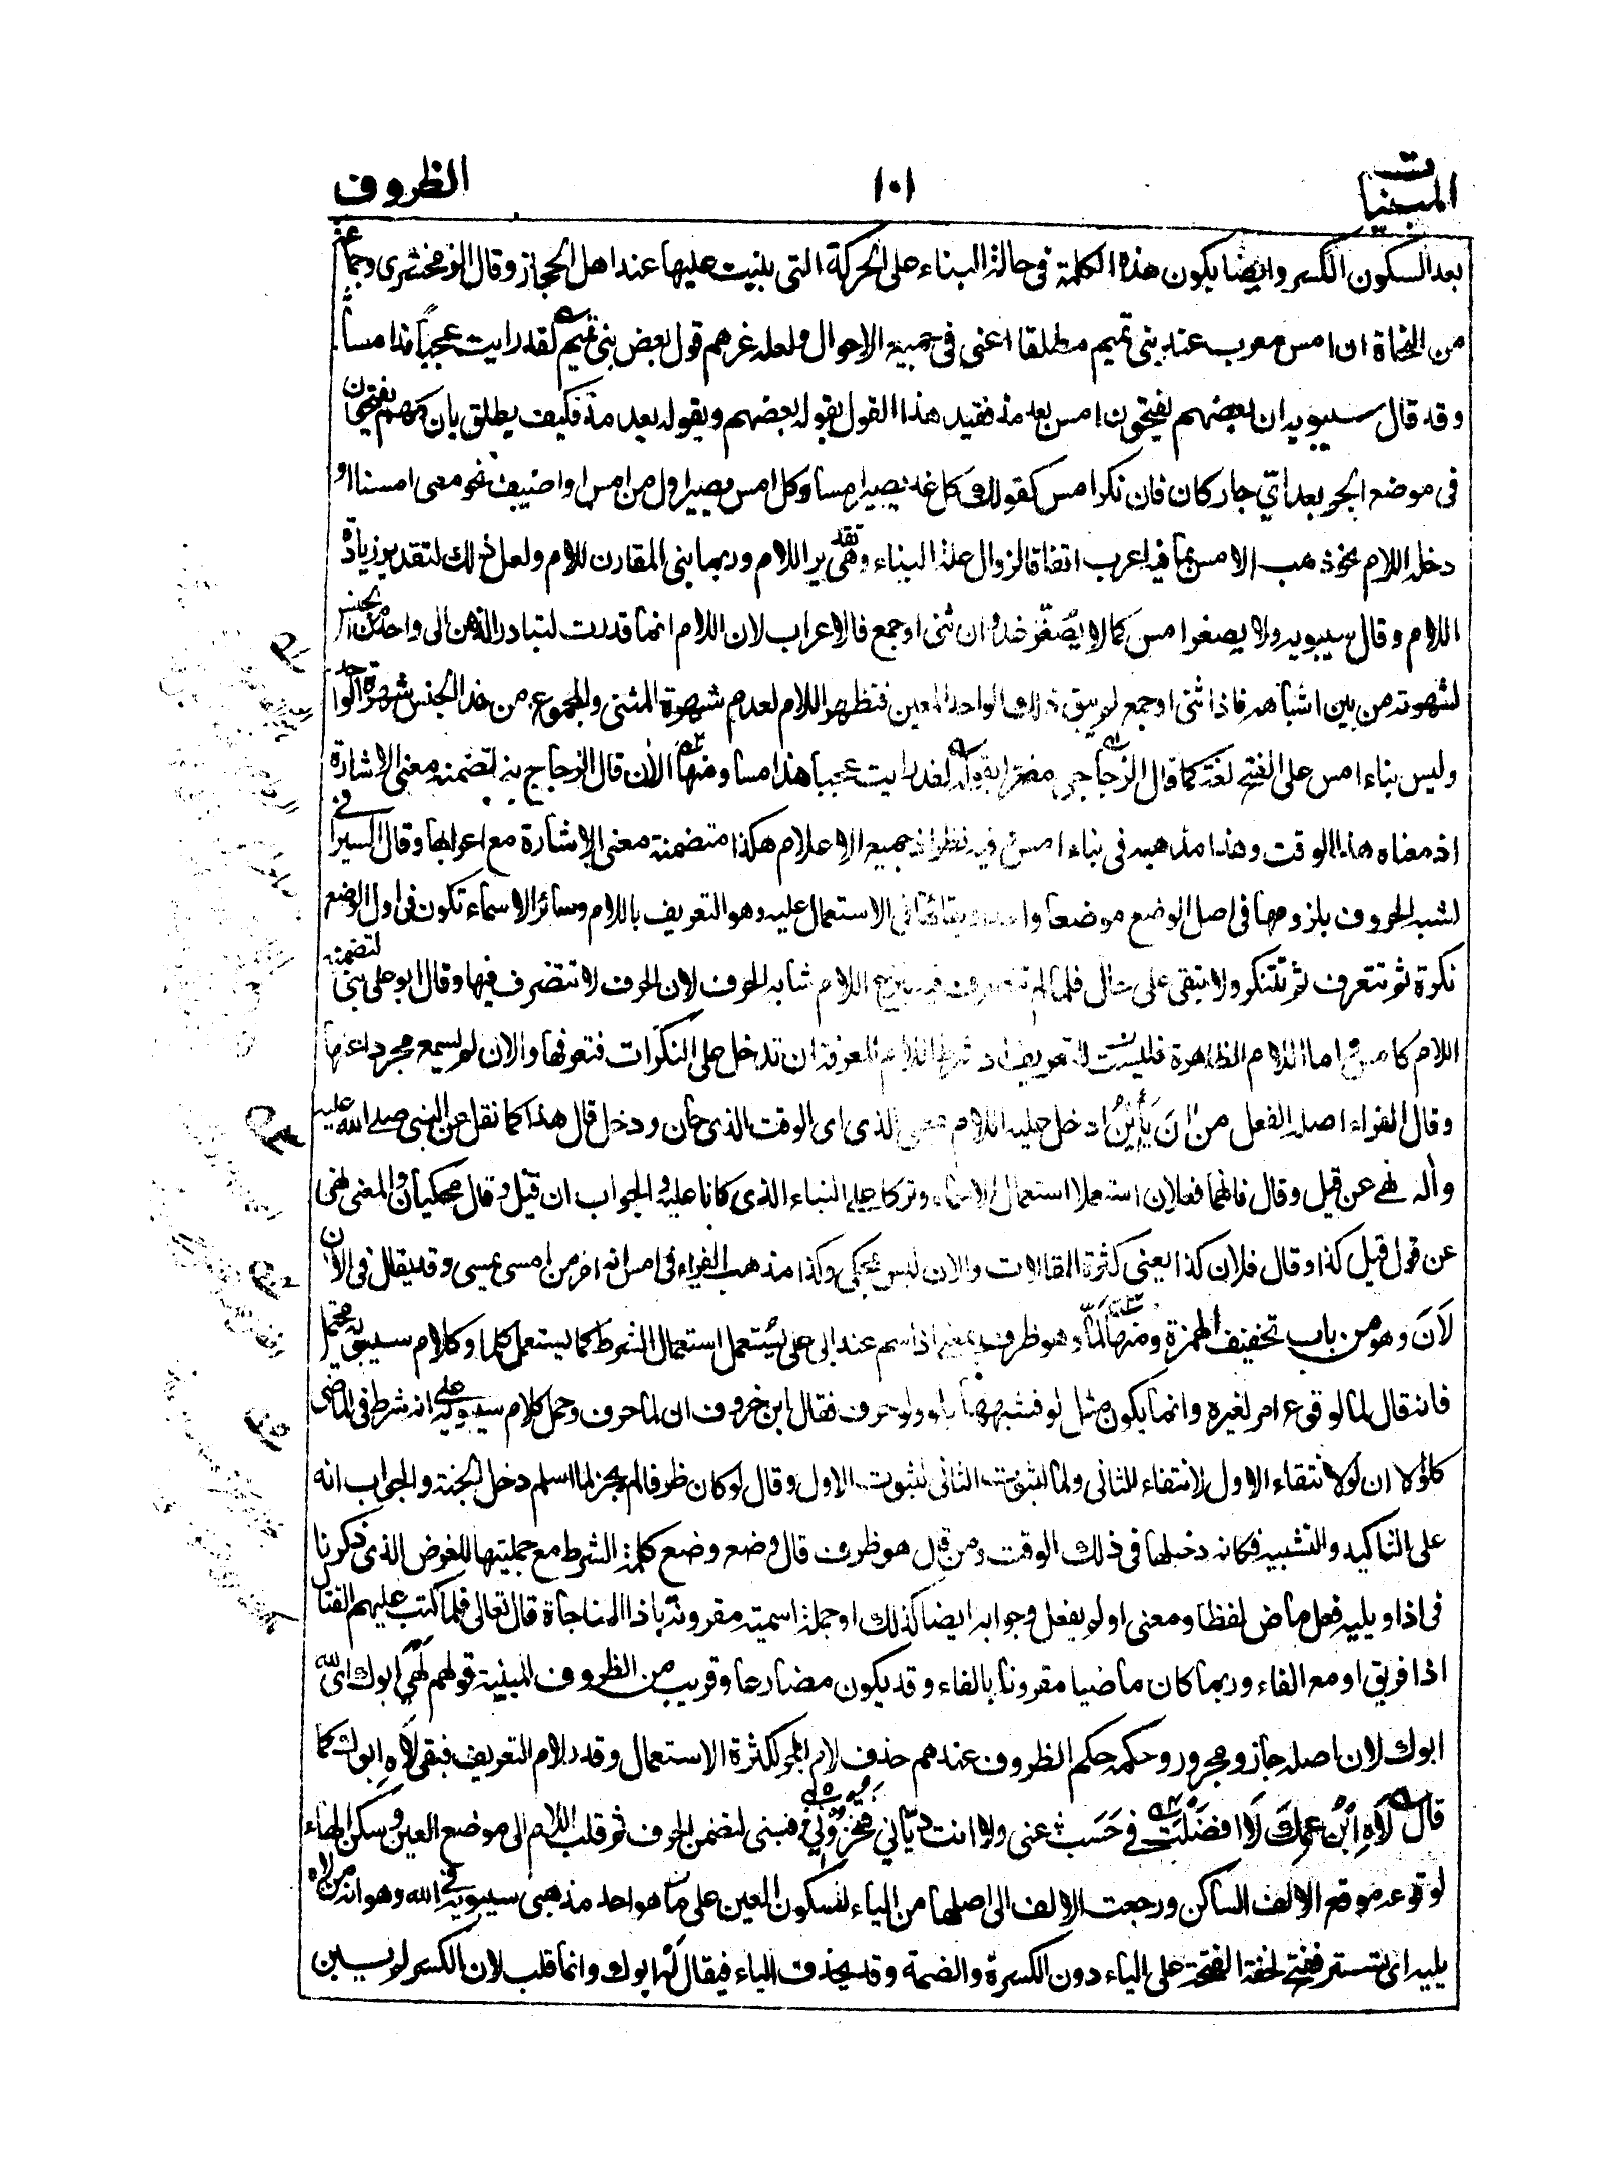 المبنيات
١٠١
الظروف
بعد السكون الكسر وايضا يكون هذه الكلمة فى حالة البناء على الحركة التى بنيت عليها عند اهل الحجاز وقال الزمخشرى وجماعة
من النحاة ان امس معرب عند بنى تميم مطلقا اعنى فى جميع الاحوال ولعله غرهم قول بعض بنى تميم لقد رايت عجبا مذ امسا
وقد قال سيبويه ان بعضهم يفتحون امس بعد مذ فقيد هذا القول بقوله بعضهم وبقوله بعد مذ فكيف يطلق بان كلهم يفتحون
فى موضع الجر بعد اىّ جار كان فان نكر امس كقولك كل غد يصير امسا وكل امس يصير اول من امس او اضيف نحو مضى امسنا او
دخله اللام نحو ذهب الامس بما فيه اعرب اتفاقا لزوال علة البناء وهى تقدير اللام وربما بنى المقارن للام ولعل ذلك لتقدير زيادة
اللام وقال سيبويه ولا يصغر امس كما لا يصغر غد وان ثنى او جمع فالاعراب لان اللام انما قدرت لتبادر الذهن الى واحد من الجنس
لشهرته من بين اشباهه فاذا ثنى او جمع لم يبق ذلك الواحد المعين فتظهر اللام لعدم شهرة المثنى والمجموع من هذا الجنس شهرة الواحد
وليس بناء امس على الفتح لغة كما قال الزجاجى مغترا بقوله لقد رايت عجبا هذا مسا ومنها الآن قال الزجاج بنى لتضمنه معنى الاشارة
اذ معناه هذا الوقت وهذا مذهبه فى بناء امس وفيه نظر اذ جميع الاعلام هكذا متضمنة معنى الاشارة مع اعرابها وقال السيرافى
لشبه الحروف بلزومها فى اصل الوضع موضعا واحدا وبقائها فى الاستعمال عليه وهو التعريف باللام وسائر الاسماء تكون فى اول الوضع
نكرة ثم تتعرف ثم تتنكر ولا تبقى على حال فلما لم تتصرف فيه بنزع اللام شابه الحرف لان الحرف لا تتصرف فيها وقال ابو على بنى لتضمنه
اللام كامس اما اللام الظاهرة فليست للتعريف اذ شرط اللام المعرفة ان تدخل على النكرات فتعرفها والان لم يسمع مجردا عنها
وقال الفراء اصله الفعل من آن يئين ادخل عليه اللام بمعنى الذى اى الوقت الذى حان ودخل قال هذا كما نقل عن النبى صلى الله عليه
وآله نهى عن قيل وقال فانهما فعلان استعملا استعمال الاسماء وتركا على البناء الذى كانا عليه والجواب ان قيل وقال محكيان والمعنى نهى
عن قول قيل كذا وقال فلان كذا يعنى كثرة المقالات والان ليس بمحكى وكذا مذهب الفراء فى امس انه امر من امسى يمسى وقد يقال فى الآن
لَانَ وهو من باب تخفيف الهمزة ومنها لما وهو ظرف بمعنى اذا اسم عند ابى على يستعمل استعمال الشرط كما يستعمل كلما وكلام سيبويه محتمل
فانه قال لما لوقوع امر لغيره وانما يكون مثل لو فشبهها بلو ولو حرف فقال ابن خروف ان لما حرف وحمل كلام سيبويه على انه شرط فى الماضى
كلو الا ان لو لانتفاء الاول لانتفاء الثانى ولما لثبوت الثانى لثبوت الاول وقال لو كان ظرفا لم يجز لما اسلم دخل الجنة والجواب انه
على التاكيد والتشبيه فكانه دخلها فى ذلك الوقت ومن قال هو ظرف قال وضع وضع كلمة الشرط مع جملتيها للغرض الذى ذكرنا
فى اذا ويليه فعل ماض لفظا ومعنى او لم يفعل وجوابه ايضا كذلك او جملة اسمية مقرونة باذا المفاجاة قال تعالى فلما كتب عليهم القتال
اذا فريق او مع الفاء وربما كان ماضيا مقرونا بالفاء وقد يكون مضارعا وقريب من الظروف المبنية قولهم لهى ابوك اى لله
ابوك لان اصله جار ومجرور وحكمه حكم الظروف عندهم حذف لام الجر لكثرة الاستعمال وقدر لام التعريف فبقى لاه ابوك كما
قال لَاهِ ابْنُ عمك لا افضلت فى حسب عنى ولا انت ديّانى فتخزونى فبنى لتضمن الحرف ثم قلب اللام الى موضع العين وسكن الهاء
لوقوعه موقع الالف الساكن ورجعت الالف الى اصلها من الياء لسكون العين على ما هو احد مذهبى سيبويه فى الله وهو انه من لاه
يليه اى تستر ففتح لخفة الفتحة على الياء دون الكسرة والضمة وقد يحذف الياء فيقال لَهَ ابوك وانما قلب لان الكسر لم يبين